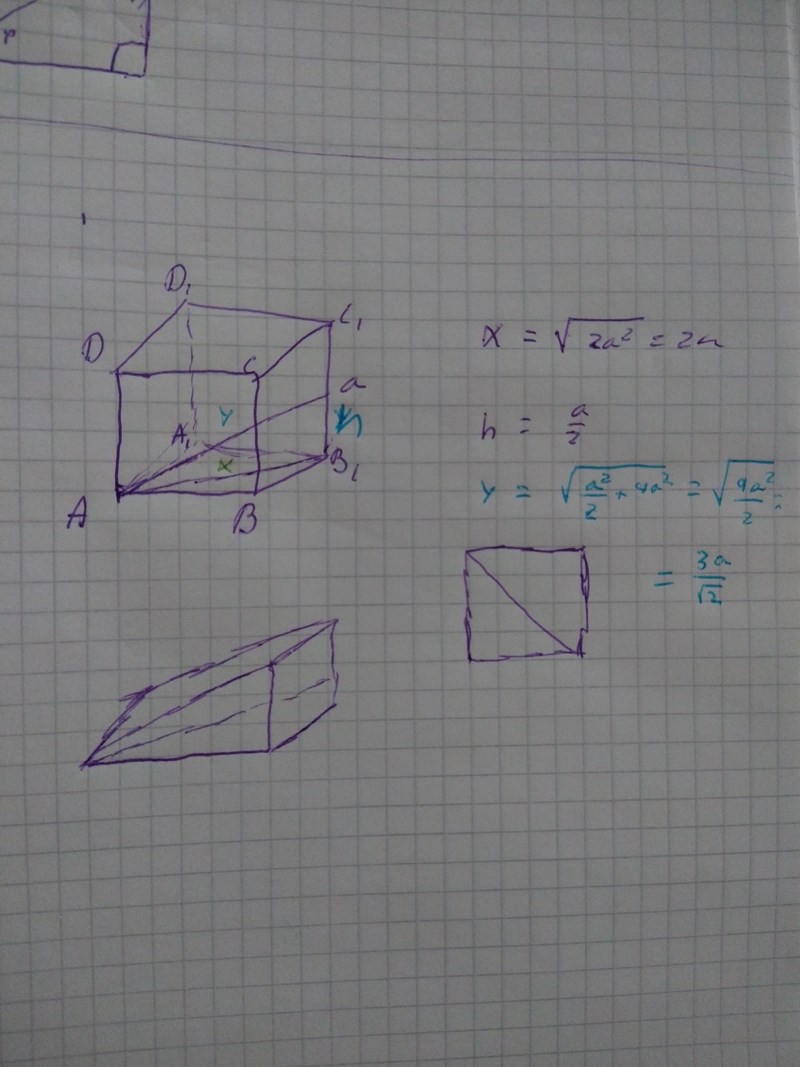 r
D₁
C₁
D
C
a
Y
h
A₁
X
B₁
A
B
X = √2a² = 2a
h = a/2
Y = √(a²/2 + 4a²) = √(9a²/2) =
= 3a/√2